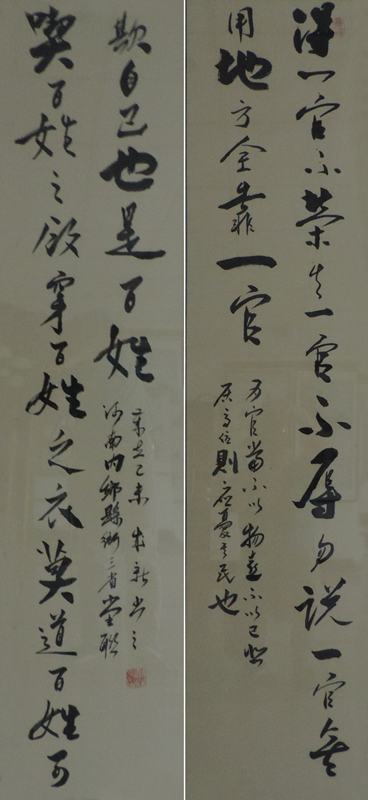 得一官不榮失一官不辱勿说一官無
用地方全靠一官
为官當不以物喜不以己悲
居高位則应憂其民也
喫百姓之飯穿百姓之衣莫道百姓可
欺自己也是百姓
河南内鄉縣衙三省堂聯
乙未 书之